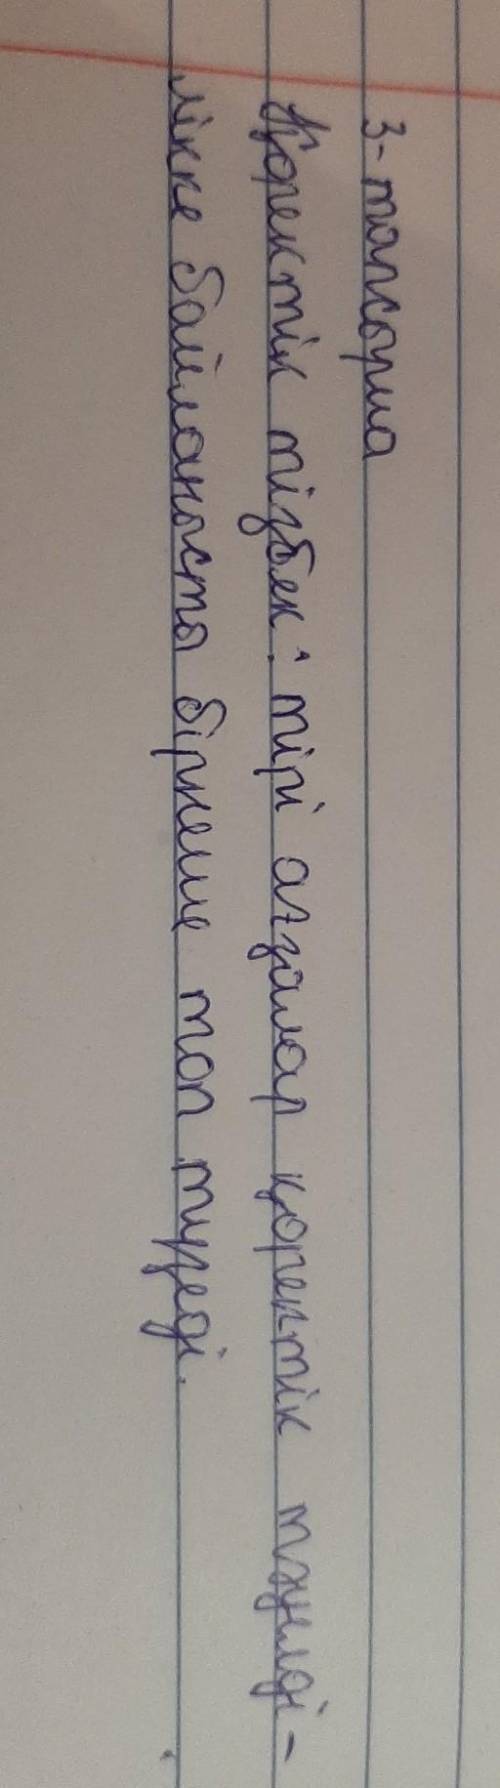 3-тапсырма
Қоректік тізбек: тірі ағзалар қоректік тәуелді-
лікке байланысты бірнеше топ түзеді.